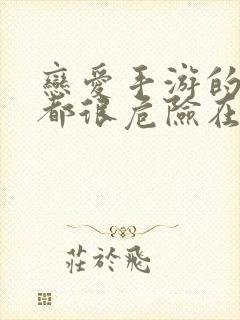 戀愛手游的
都很危險在
莊於飛